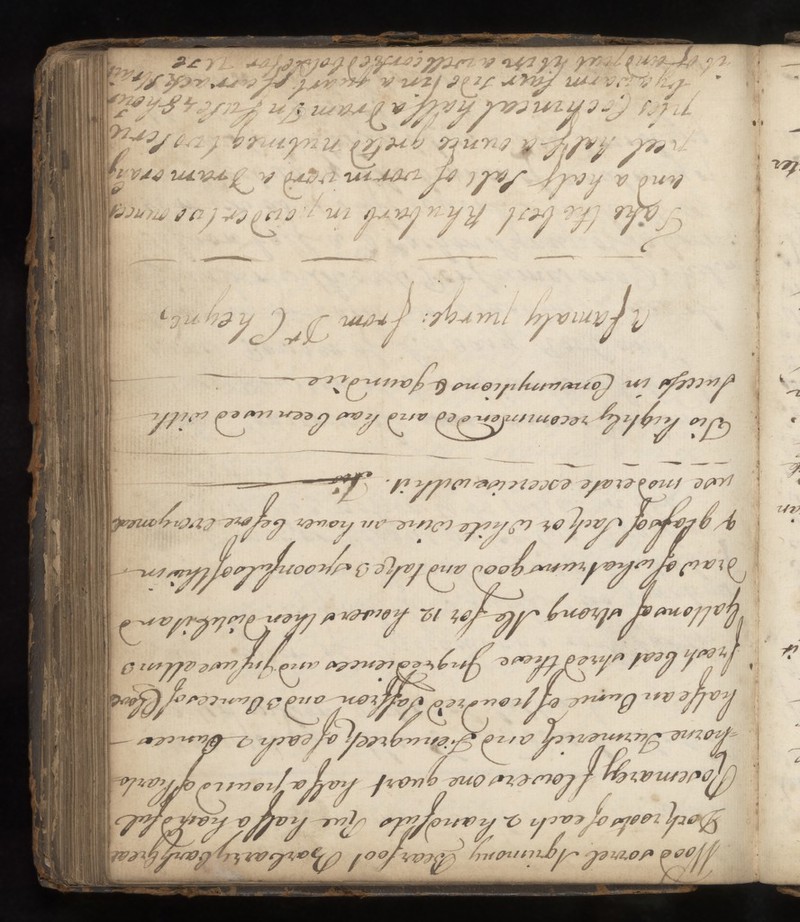 Wood sorrel Agrimony Bearfoot Barbary bark great
Dock roots of each 2 handfuls Rue half a handful
Rosemary flowers one quart half a pound of harts
=horne Turmerick and Fenugreek of each 2 Ounces
halfe an Ounce of pounded Saffron and 3 Ounces of
fresh beat shred these Ingrediences and Infuse all in 3
Gallons of strong Ale for 12 howers then distil it and
draw of what runs good and take 3 spoonfuls of this in
a glass of Sack or white wine an hower before every meal
use moderate excercise with it.
Tis highly recommended and has been used with
Success in Consumptions & jaundice
A famaly purge: from Dr Cheyne,
Take the best Rhubarb in powder two ounces
and a half Salt of wormwood a Dram orang
peel half a ounce grated nutmeg two scru
ples Cochineal half a Dram Infuse 48 hours
by a warm fier side in a quart of arrack strain
it of and put it in a well corked bottle for use